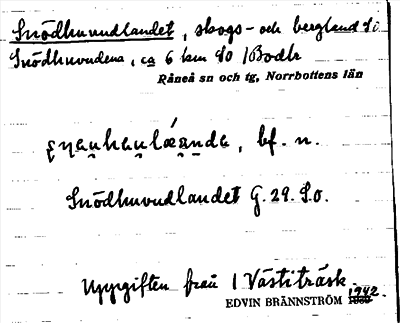 Snödhuvudlandet, skogs- och bergland S i
Snödhuvudena, ca 6 km SO 1 Bodtr
Råneå sn och tg, Norrbottens län
bf. n.
Snödhuvudlandet G. 29. S.o.
Uppgiften från 1 Västiträsk
1942
EDVIN BRÄNNSTRÖM